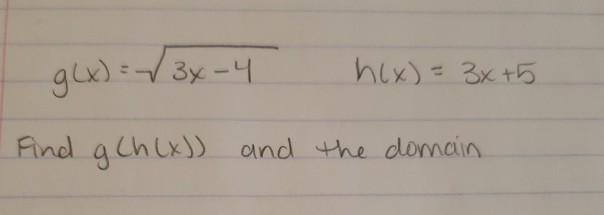 g(x) = √3x-4 h(x) = 3x+5
Find g(h(x)) and the domain